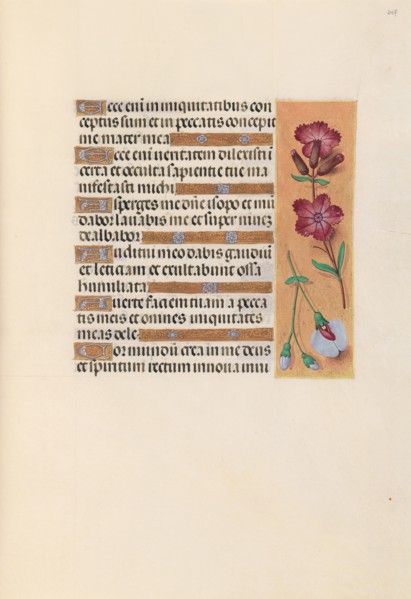 Ecce eni in iniquitatibus con
ceptus sum et in peccatis concepit
me mater mea
Ecce eni veritatem dilexisti i
certa et occulta sapientie tue ma
nifestasti michi
Asperges me dñe isopo et mũ
dabor lavabis me et super nivẽ
dealbabor
Auditui meo dabis gaudiũ
et leticiam et exultabunt ossa
humiliata
Averte faciem tuam a pecca
tis meis et omnes iniquitates
meas dele
Cor mundũ crea in me deus
et spiritum rectum innova in vi